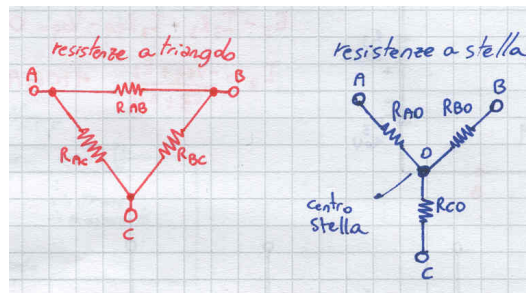 resistenze a triangolo
A
B
RAB
RAC
RBC
C
resistenze a stella
A
B
RAO
RBO
O
centro
stella
RCO
C